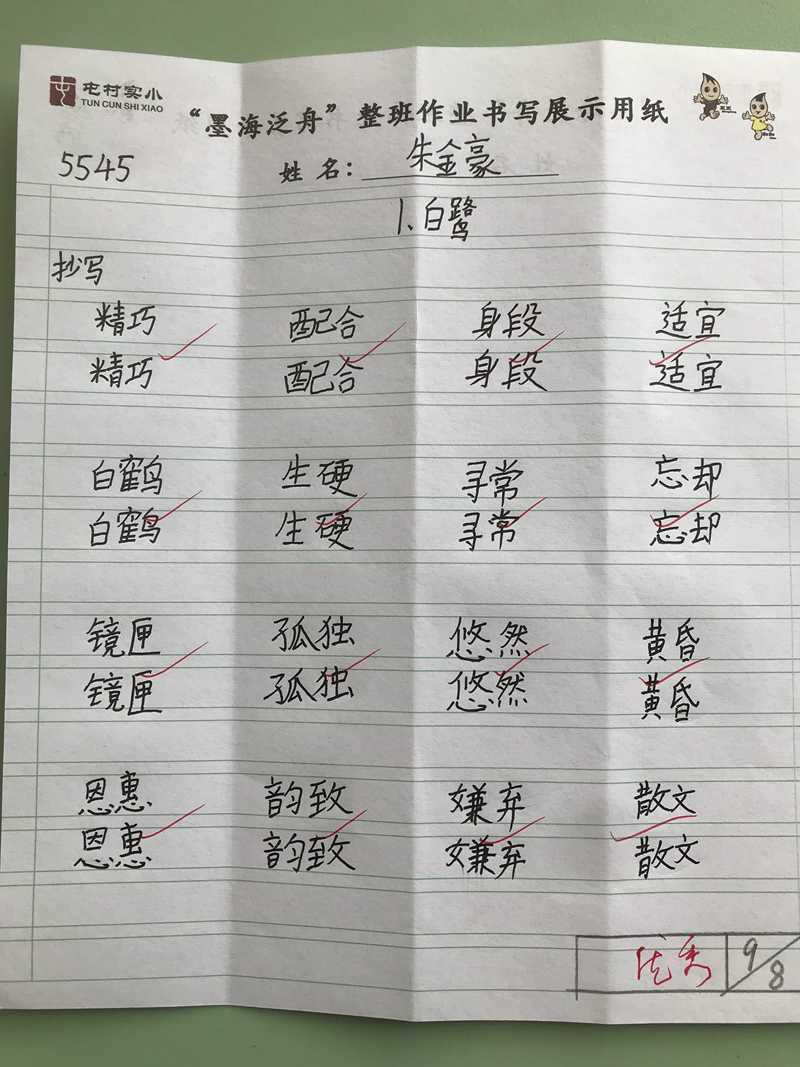 屯村实小
TUN CUN SHI XIAO
“墨海泛舟”整班作业书写展示用纸
5545 姓名：朱金豪
1、白鹭
抄写
精巧 配合 身段 适宜
精巧 配合 身段 适宜
白鹤 生硬 寻常 忘却
白鹤 生硬 寻常 忘却
镜匣 孤独 悠然 黄昏
镜匣 孤独 悠然 黄昏
恩惠 韵致 嫌弃 散文
恩惠 韵致 嫌弃 散文
优秀 9/8